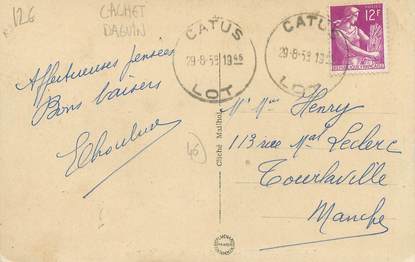 126
CACHET
DAGUIN
CATUS
29-8-58 1945
LOT
CATUS
29-8-58 19
LO
12F
Affectueuses pensées
Bons baisers
Cliché Mailhol
Mr Mme Henry
113 rue Mal Leclerc
Tourlaville
Manche